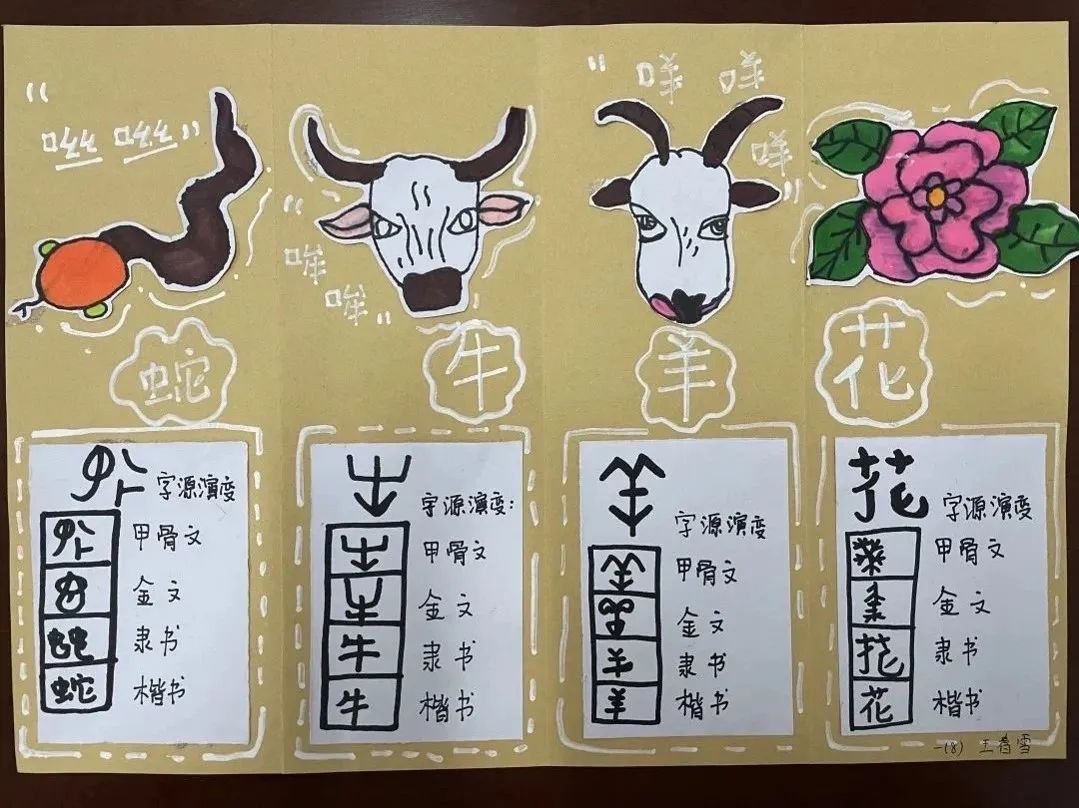 “咝咝 咝咝”
蛇
字源演变
甲骨文
金文
隶书
蛇 楷书
“哞
哞”
牛
字源演变:
甲骨文
金文
牛 隶书
牛 楷书
“咩 咩
咩”
羊
字源演变
甲骨文
金文
羊 隶书
羊 楷书
花
花 字源演变
甲骨文
金文
隶书
花 楷书
一(8)